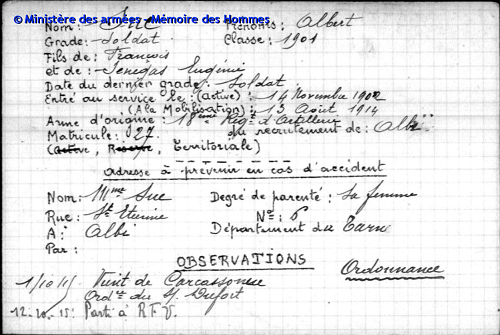 © Ministère des armées - Mémoire des Hommes
Nom: Suc Prénoms: Albert
Grade: Soldat Classe: 1901
Fils de: François
et de: Senegas Eugénie
Date du dernier grade: Soldat
Entré au service le: (active): 14 Novembre 1902
(à la Mobilisation): 3 Août 1914
Arme d'origine: 18ème Régt d'Artillerie
Matricule: 127 du recrutement de: Albi
(Active, Réserve, Territoriale)
Adresse à prévenir en cas d'accident
Nom: Mme Suc Degré de parenté: sa femme
Rue: St Etienne No: 6
A: Albi Département du Tarn
Par:
OBSERVATIONS
Ordonnance
1/10/15 Vient de Carcassonne
Ord ce du
12-10-15: Parti à R.F.V.